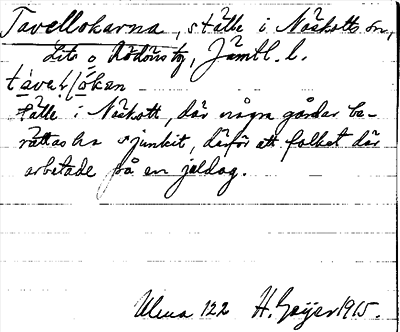 Tavellokarna, ställe i Näskotts sn.,
Lits o Rödöns tg, Jämtl. l.
ställe i Näskott, där några gårdar be-
rättas ha sjunkit, därför att folket där
arbetade på en juldag.
Ulma 122 H. Geijer 1915.